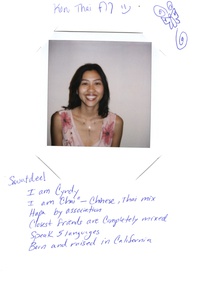 I am Cyndy
I am "Chai" — Chinese, Thai mix
Hapa by association
Closest friends are completely mixed
Speak 5 languages
Born and raised in California